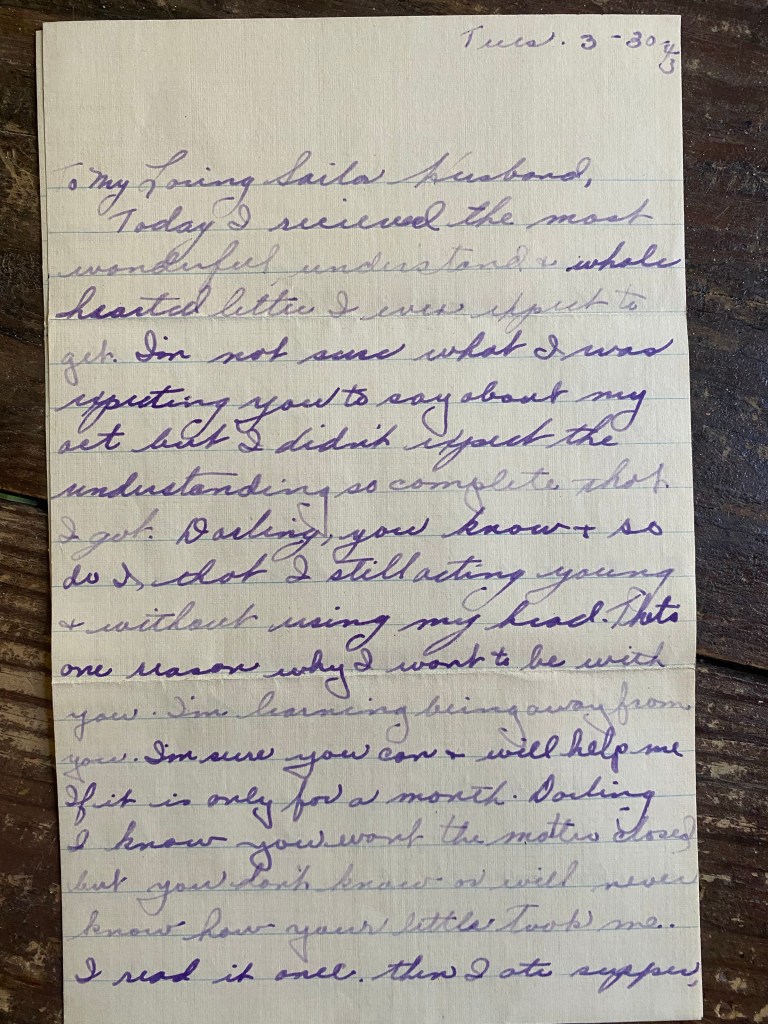 Tues. 3-30-43
To My Loving Sailor Husband,
Today I recieved the most
wonderful, understand & whole
hearted letter I ever expect to
get. I'm not sure what I was
expecting you to say about my
act but I didn't expect the
understanding so complete that
I got. Darling, you know & so
do I, that I still acting young
& without using my head. Thats
one reason why I want to be with
you. I'm learning being away from
you. I'm sure you can & will help me
If it is only for a month. Darling
I know you want the matter closed
but you don't know or will never
know how your letter took me.
I read it once. then I ate supper,